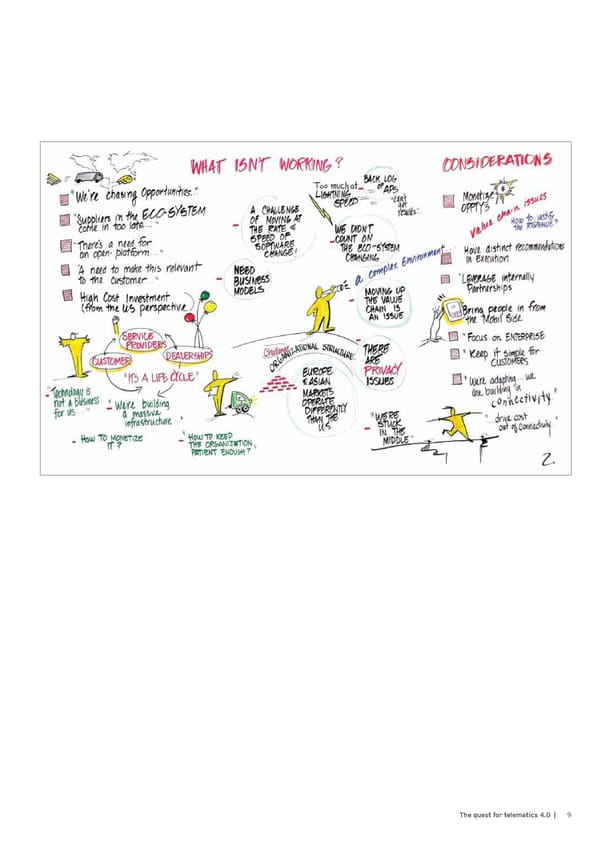 WHAT ISN'T WORKING?
"We're chasing Opportunities..."
"Suppliers in the ECO-SYSTEM
come in too late..."
"There's a need for
an open platform..."
"A need to make this relevant
to the customer..."
High Cost Investment
(from the US perspective)
SERVICE
PROVIDERS
CUSTOMER
DEALERSHIPS
"IT'S A LIFE CYCLE"
"Technology is
not a business
for us..."
- "We're building
a massive
infrastructure..."
- HOW TO MONETIZE
IT?
- "HOW TO KEEP
THE ORGANIZATION
PATIENT ENOUGH?
- A CHALLENGE
OF MOVING AT
THE RATE &
SPEED OF
SOFTWARE
CHANGE!
- NEED
BUSINESS
MODELS
Too much at
LIGHTNING
SPEED
- BACK LOG
OF APS
"can't
get
results"
- WE DIDN'T
COUNT ON
THE ECO-SYSTEM
CHANGING
a complex Environment...
- MOVING UP
THE VALUE
CHAIN IS
AN ISSUE
Challenge
ORGANIZATIONAL STRUCTURE
- THERE
ARE
PRIVACY
ISSUES
EUROPE
& ASIAN
MARKETS
OPERATE
DIFFERENTLY
THAN THE
U.S.
- "WE'RE
STUCK
IN THE
MIDDLE"
CONSIDERATIONS
Monetize
OPPTY'S
$
value chain ISSUES
HOW TO
THE REVENUE?
Have distinct recommendations
in Execution
"LEVERAGE internally
Partnerships
Bring people in from
the Mobil Side
"Focus on ENTERPRISE
"Keep it simple for
CUSTOMERS
"We're adapting... we
are building in
connectivity"
"drive cost
out of connectivity"
2.
The quest for telematics 4.0 | 9